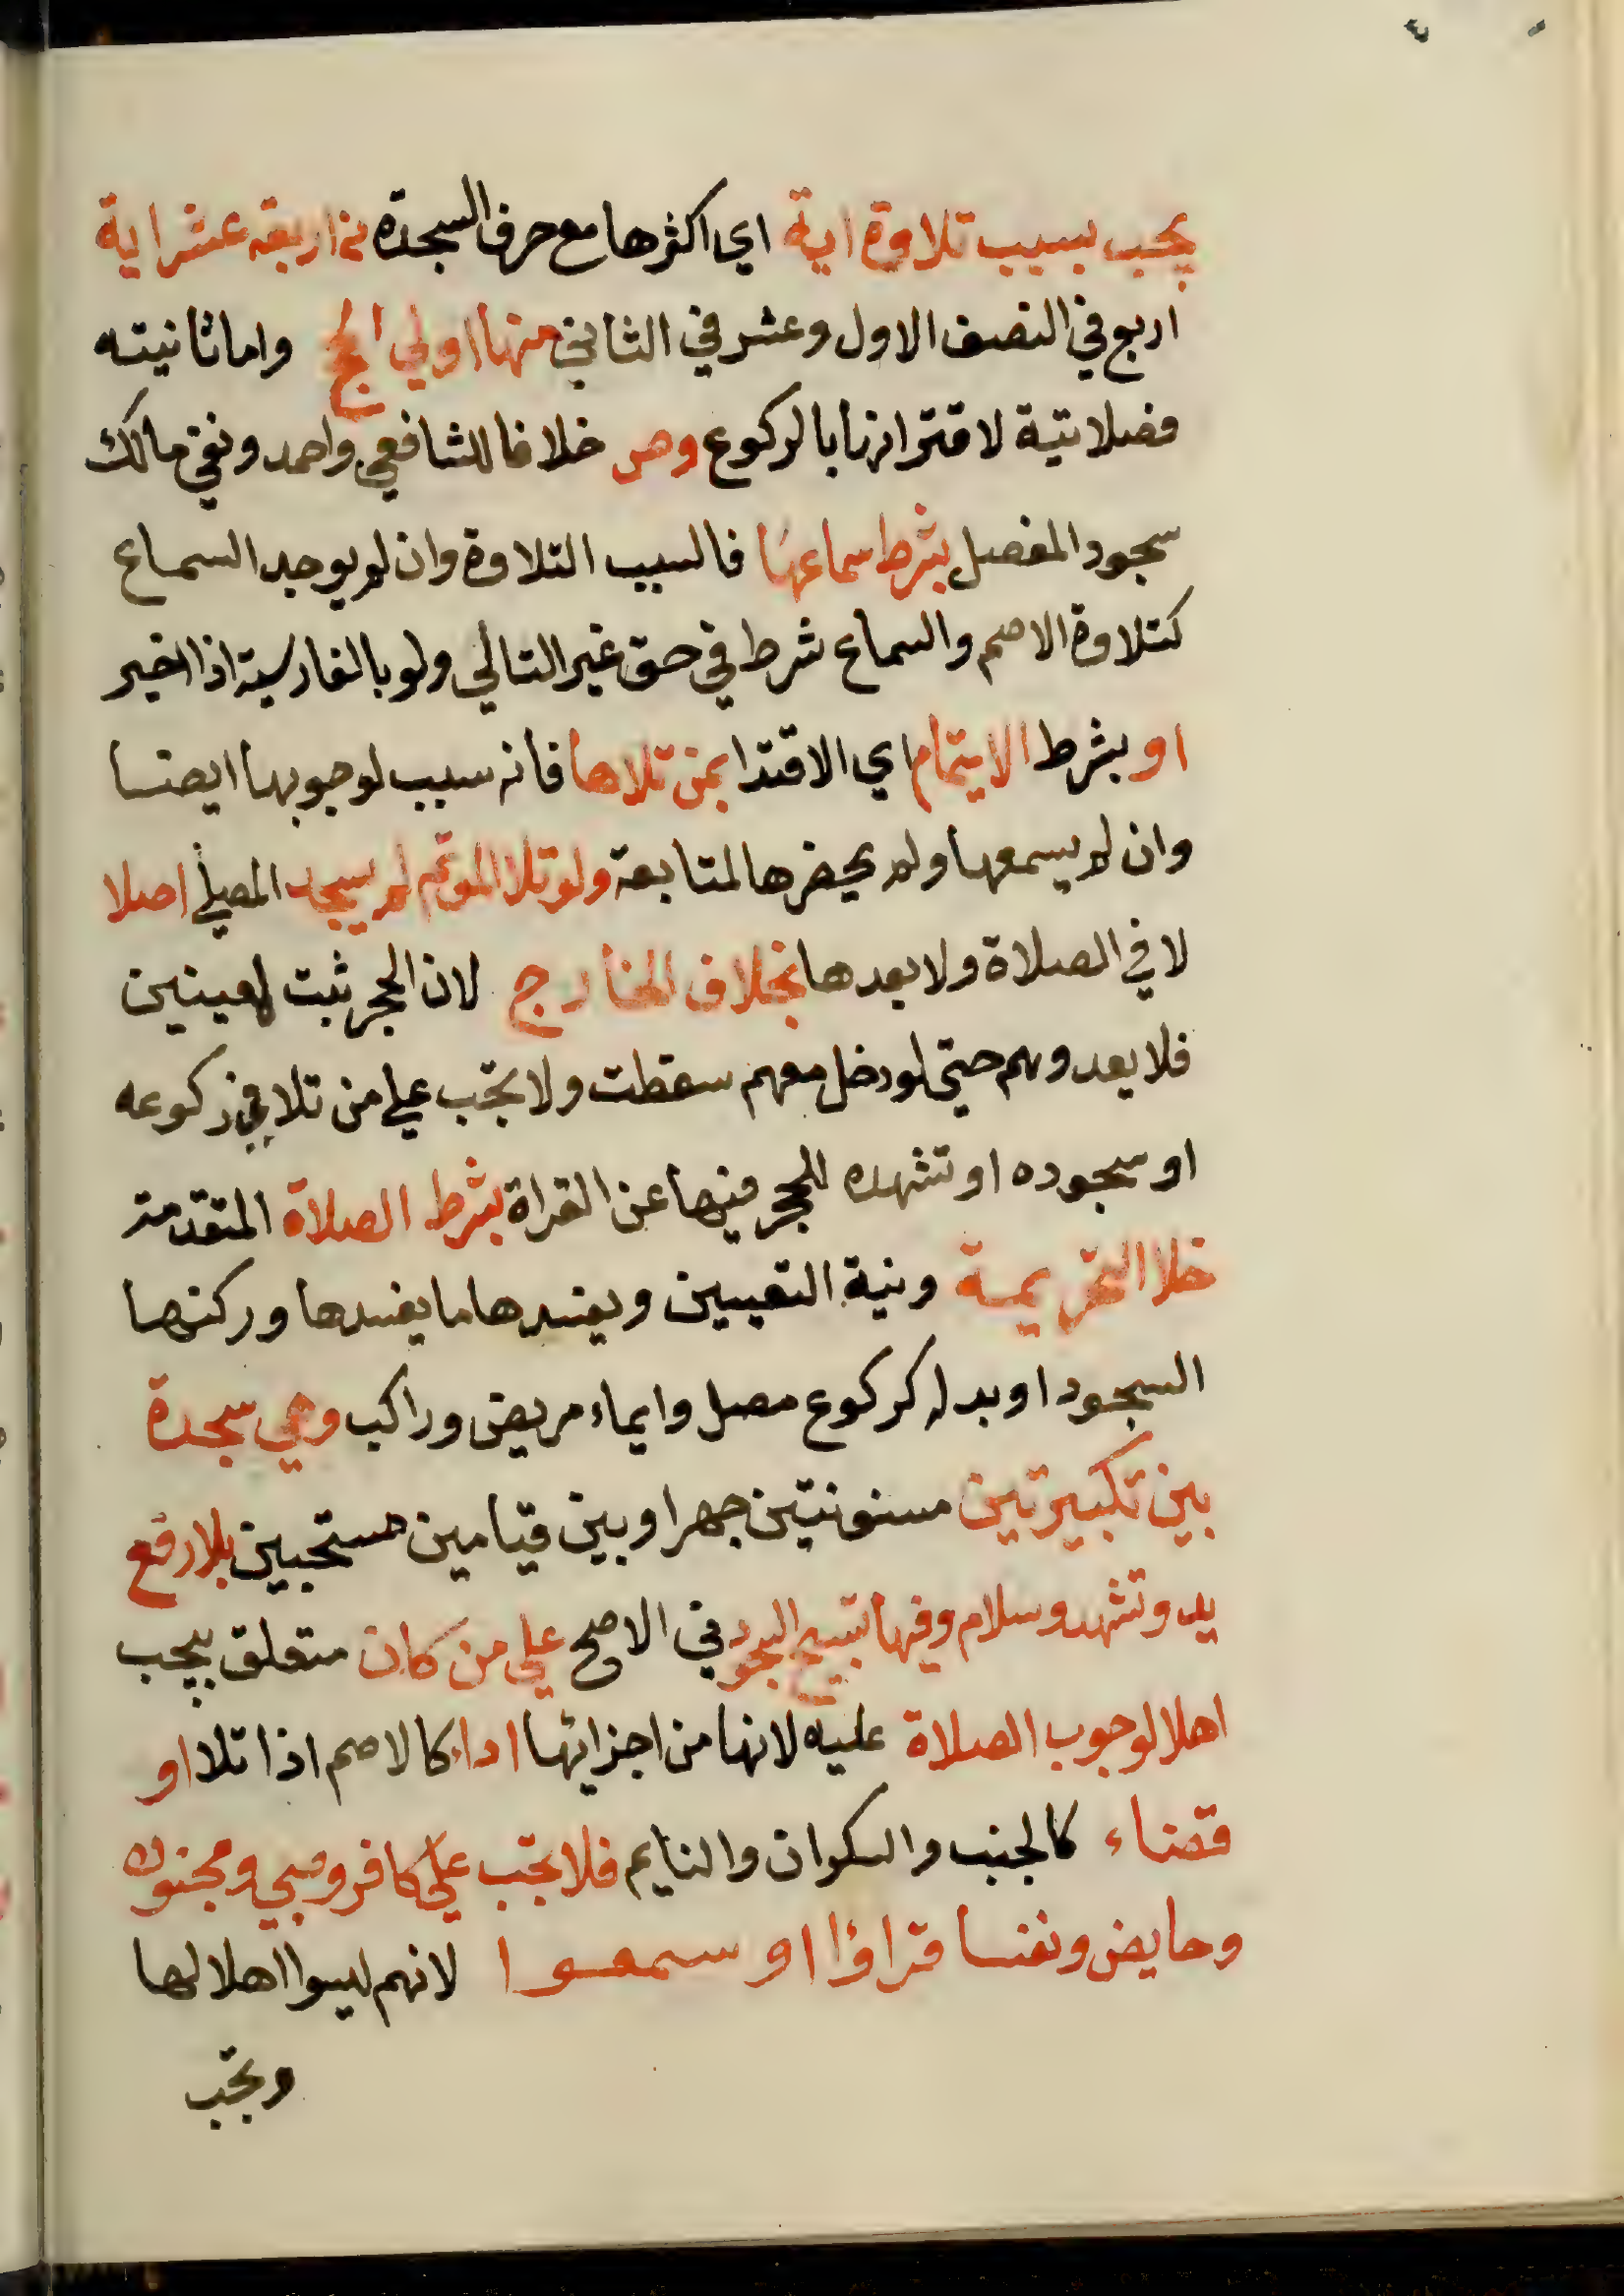 يجب بسبب تلاوة اية اي اكثرها مع حرف السجدة في اربعة عشر اية
اربع في النصف الاول وعشر في الثاني منها اولي الحج واما ثانيته
فصلاتية لاقترانها بالركوع وص خلافا للشافعي واحمد ونفي مالك
سجود المفصل بشرط سماعها فالسبب التلاوة وان لم يوجد السماع
كتلاوة الاصم والسماع شرط في حق غير التالي ولو بالفارسية اذا اخبر
او بشرط الايتمام اي الاقتدا بمن تلاها فانه سبب لوجوبها ايضا
وان لم يسمعها ولم يحضرها لمتابعة ولو تلا الموتم لم يسجد المصلي اصلا
لا في الصلاة ولا بعدها بخلاف الخارج لان الحجر ثبت لمعينين
فلا يعدوهم حتى لو دخل معهم سقطت ولا تجب علي من تلا في ركوعه
او سجوده او تشهده للحجر فيها عن القراة بشرط الصلاة المتقدمة
خلا التحريمة ونية التعيين ويفسدها ما يفسدها وركنها
السجود او بدله كركوع مصل وايماء مريض وراكب وهي سجدة
بين تكبيرتين مسنونتين جهرا وبين قيامين مستحبين بلا رفع
يد وتشهد وسلام وفيها تسبيح السجود في الاصح علي من كان متعلق بيجب
اهلا لوجوب الصلاة عليه لانها من اجزائها اداء كالاصم اذا تلا او
قضاء كالجنب والسكران والنايم فلا تجب علي كافر وصبي ومجنون
وحايض ونفسا قراؤا او سمعوا لانهم ليسوا اهلا لها
وتجب